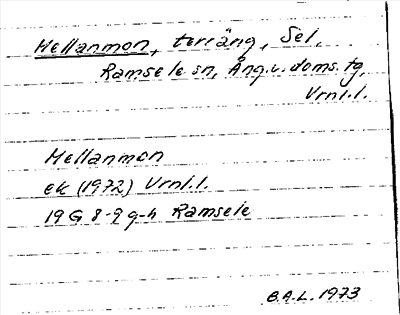 Mellanmon, terräng, Sel,
Ramsele sn, Ång.v. doms. tg,
Vrnl.l.
Mellanmon
ek (1972) Vrnl.l.
19 G 8-9 g-h Ramsele
B.A.L. 1973